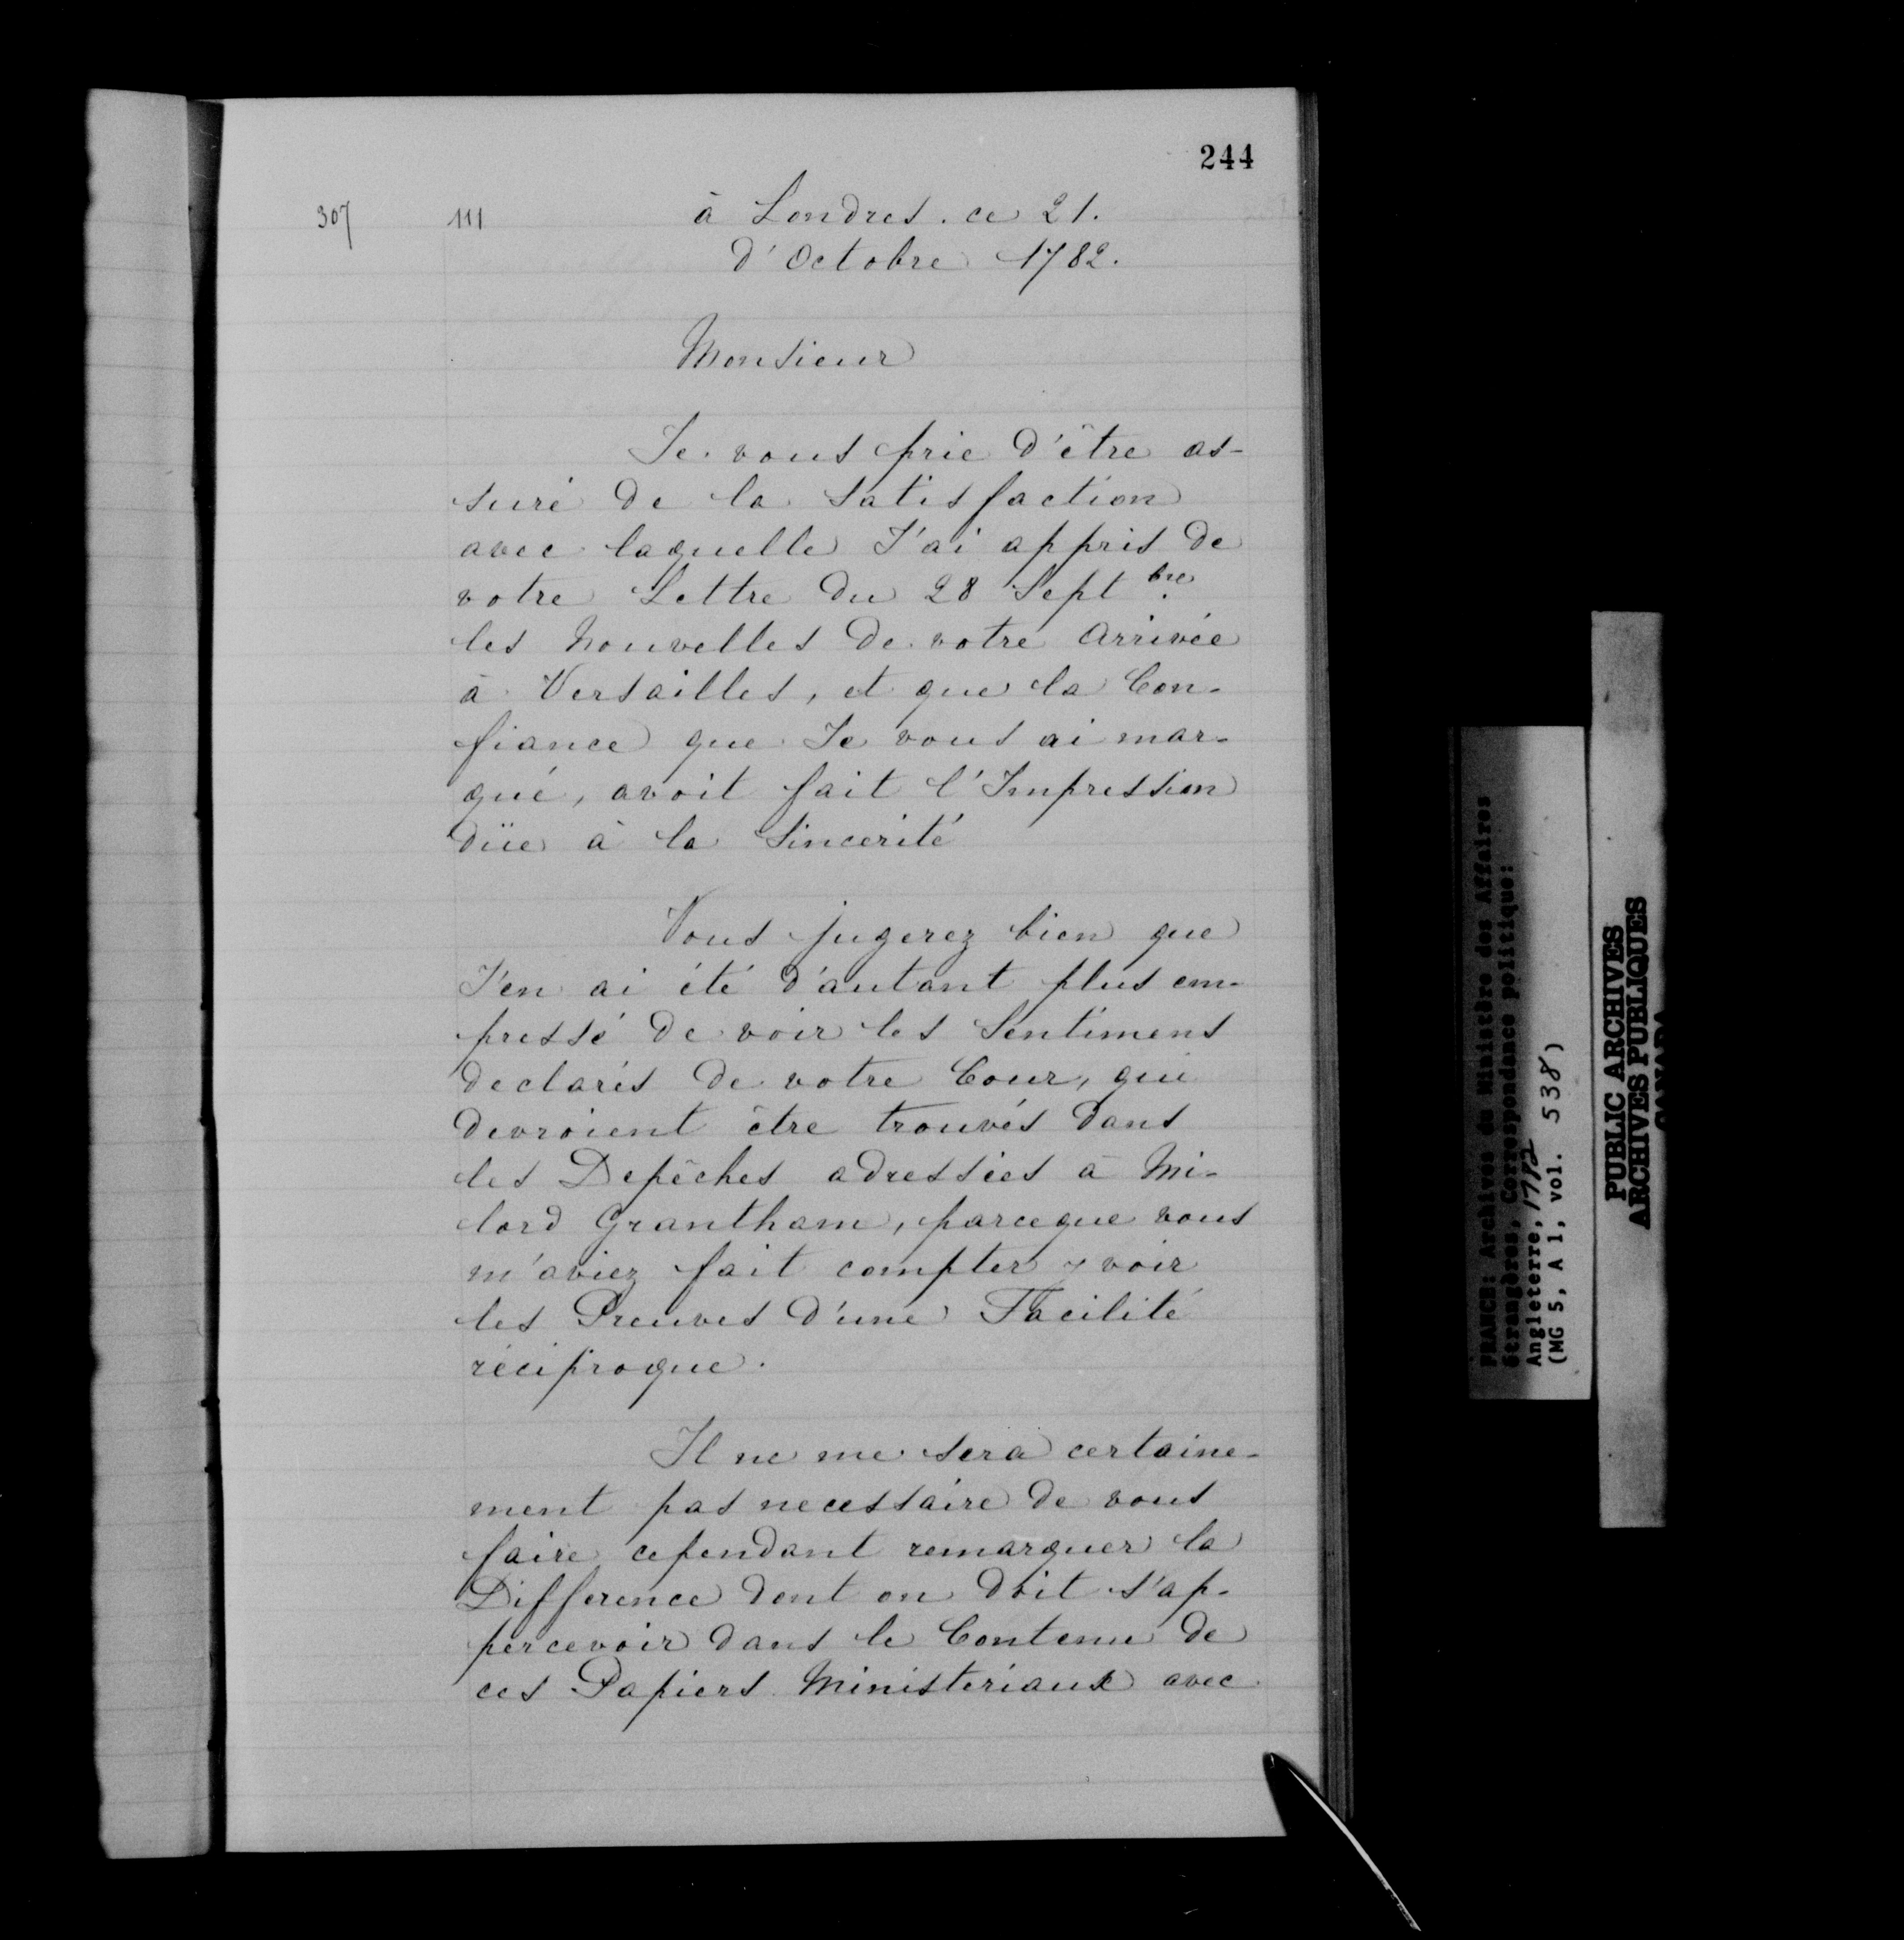 244
307 111 à Londres. ce 21.
d'Octobre 1782.
Monsieur
Je vous prie d'être as-
suré de la Satisfaction
avec laquelle J'ai appris de
votre Lettre du 28 Septbre.
les Nouvelles de votre Arrivée
à Versailles, et que la Con-
fiance que Je vous ai mar-
qué, avoit fait l'Impression
düe à la Sincerité
Vous jugerez bien que
J'en ai été d'autant plus em-
pressé de voir les Sentimens
declarés de votre Cour, qui
devroient être trouvés dans
les Depêches adressées à Mi-
lord Grantham, parceque vous
m'aviez fait compter y voir
les Preuves d'une Facilité
réciproque.
Il ne me sera certaine-
ment pas necessaire de vous
faire cependant remarquer la
Difference dont on doit s'ap-
percevoir dans le Contenu de
ces Papiers Ministeriaux avec
FRANCE: Archives du Ministère des Affaires
étrangères, Correspondance politique:
Angleterre, 1782
(MG 5, A 1, vol. 538)
PUBLIC ARCHIVES
ARCHIVES PUBLIQUES
CANADA